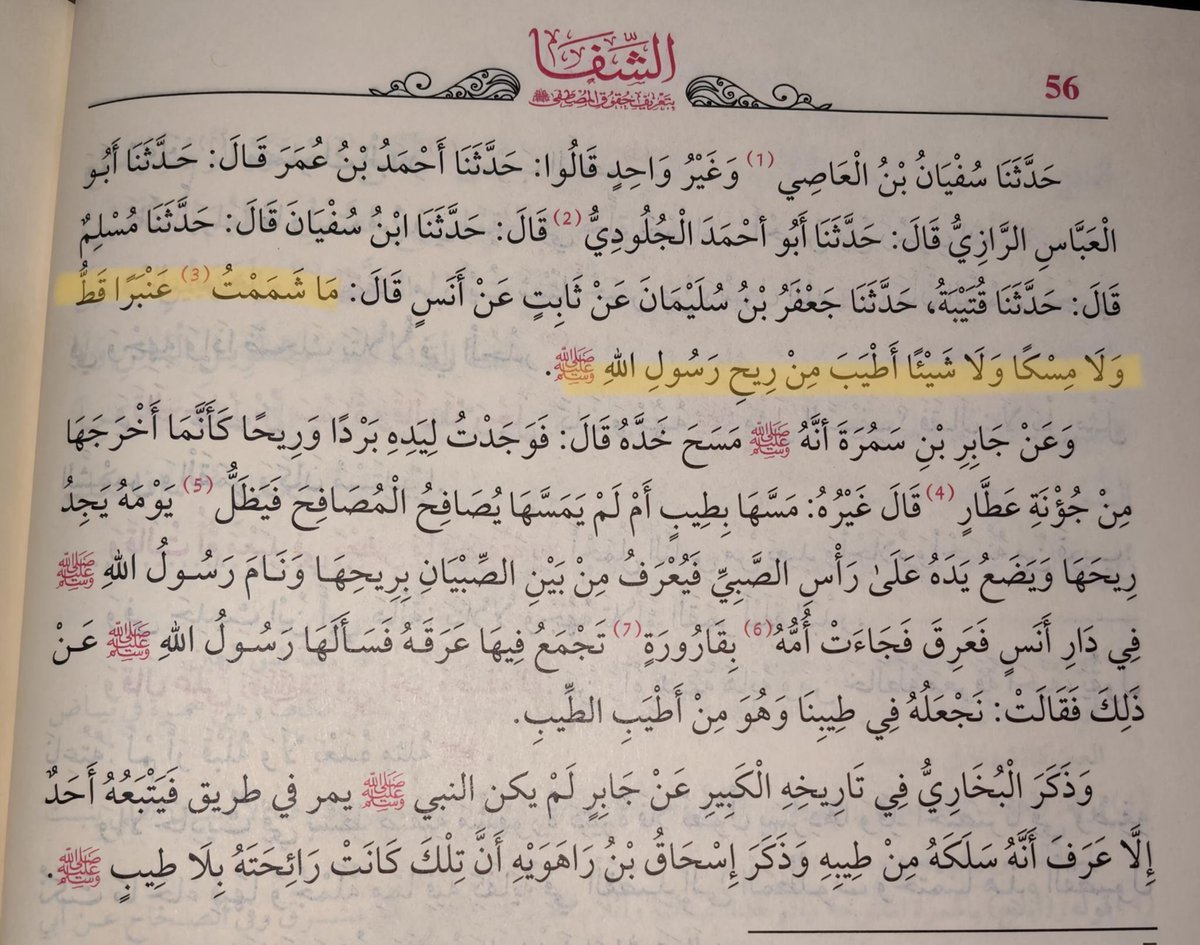 الشِّفَا
بِتَعْرِيفِ حُقُوقِ الْمُصْطَفَى ﷺ
56
حَدَّثَنَا سُفْيَانُ بْنُ الْعَاصِي (1) وَغَيْرُ وَاحِدٍ قَالُوا: حَدَّثَنَا أَحْمَدُ بْنُ عُمَرَ قَالَ: حَدَّثَنَا أَبُو
الْعَبَّاسِ الرَّازِيُّ قَالَ: حَدَّثَنَا أَبُو أَحْمَدَ الْجُلُودِيُّ (2) قَالَ: حَدَّثَنَا ابْنُ سُفْيَانَ قَالَ: حَدَّثَنَا مُسْلِمٌ
قَالَ: حَدَّثَنَا قُتَيْبَةُ، حَدَّثَنَا جَعْفَرُ بْنُ سُلَيْمَانَ عَنْ ثَابِتٍ عَنْ أَنَسٍ قَالَ: مَا شَمَمْتُ (3) عَنْبَرًا قَطُّ
وَلَا مِسْكًا وَلَا شَيْئًا أَطْيَبَ مِنْ رِيحِ رَسُولِ اللهِ ﷺ.
وَعَنْ جَابِرِ بْنِ سَمُرَةَ أَنَّهُ ﷺ مَسَحَ خَدَّهُ قَالَ: فَوَجَدْتُ لِيَدِهِ بَرْدًا وَرِيحًا كَأَنَّمَا أَخْرَجَهَا
مِنْ جُؤْنَةِ عَطَّارٍ (4) قَالَ غَيْرُهُ: مَسَّهَا بِطِيبٍ أَمْ لَمْ يَمَسَّهَا يُصَافِحُ الْمُصَافِحَ فَيَظَلُّ (5) يَوْمَهُ يَجِدُ
رِيحَهَا وَيَضَعُ يَدَهُ عَلَىٰ رَأْسِ الصَّبِيِّ فَيُعْرَفُ مِنْ بَيْنِ الصِّبْيَانِ بِرِيحِهَا وَنَامَ رَسُولُ اللهِ ﷺ
فِي دَارِ أَنَسٍ فَعَرِقَ فَجَاءَتْ أُمُّهُ (6) بِقَارُورَةٍ (7) تَجْمَعُ فِيهَا عَرَقَهُ فَسَأَلَهَا رَسُولُ اللهِ ﷺ عَنْ
ذَلِكَ فَقَالَتْ: نَجْعَلُهُ فِي طِيبِنَا وَهُوَ مِنْ أَطْيَبِ الطِّيبِ.
وَذَكَرَ الْبُخَارِيُّ فِي تَارِيخِهِ الْكَبِيرِ عَنْ جَابِرٍ لَمْ يكن النبي ﷺ يمر في طريق فَيَتْبَعُهُ أَحَدٌ
إِلَّا عَرَفَ أَنَّهُ سَلَكَهُ مِنْ طِيبِهِ وَذَكَرَ إِسْحَاقُ بْنُ رَاهَوَيْهِ أَنَّ تِلْكَ كَانَتْ رَائِحَتَهُ بِلَا طِيبٍ ﷺ.